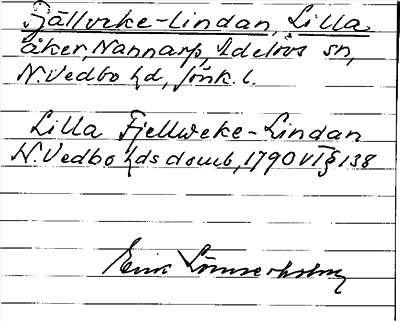 Fjällveke-Lindan, Lilla
åker, Nannarp, Adelövs sn,
N. Vedbo hd, Jönk. l.
Lilla Fjellweke-Lindan
N. Vedbo hds domb, 1790 VI § 138
Erik